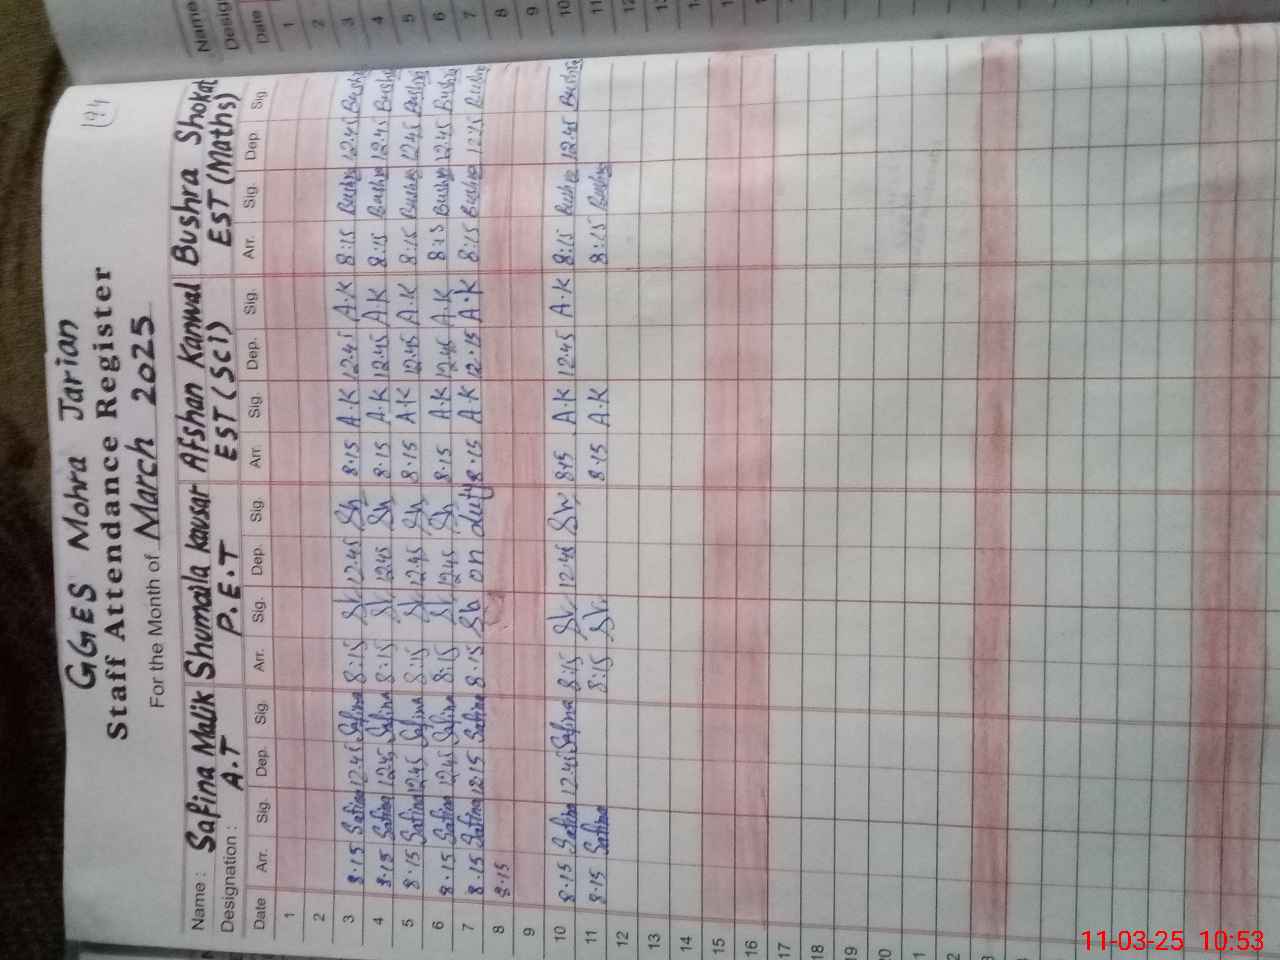 194
GGES Mohra Jarian
Staff Attendance Register
For the Month of March 2025
Name: Safina Malik Shumaila kausar Afshan Kanwal Bushra Shokat
Designation: A.T P.E.T EST (SCI) EST (Maths)
Date Arr. Sig. Dep. Sig. Arr. Sig. Dep. Sig. Arr. Sig. Dep. Sig. Arr. Sig. Dep. Sig
1
2
3 8.15 Safina 12.45 Safina 8:15 12.45 Sh 8.15 A.K 12.45 A.K 8:15 Bushra 12.45 Bushra
4 8.15 Safina 12.45 Safina 8:15 12.45 Sh 8.15 A.K 12.45 A.K 8:15 Bushra 12.45 Bushra
5 8.15 Safina 12.45 Safina 8:15 12.45 Sh 8.15 A.K 12.45 A.K 8:15 Bushra 12.45 Bushra
6 8.15 Safina 12.45 Safina 8:15 12.45 Sh 8.15 A.K 12.45 A.K 8:15 Bushra 12.45 Bushra
7 8.15 Safina 12.15 Safina 8.15 on duty 8.15 A.K 12.15 A.K 8:15 Bushra 12:15 Bushra
8 8.15
9
10 8.15 Safina 12.45 Safina 8:15 12.45 8.15 A.K 12.45 A.K 8:15 Bushra 12.45 Bushra
11 8.15 Safina 8:15 8.15 A.K 8:15 Bushra
12
13
14
15
16
17
18
19
20
Name
Desig
Date
1
2
3
4
5
6
7
8
9
10
11
12
11-03-25 10:53